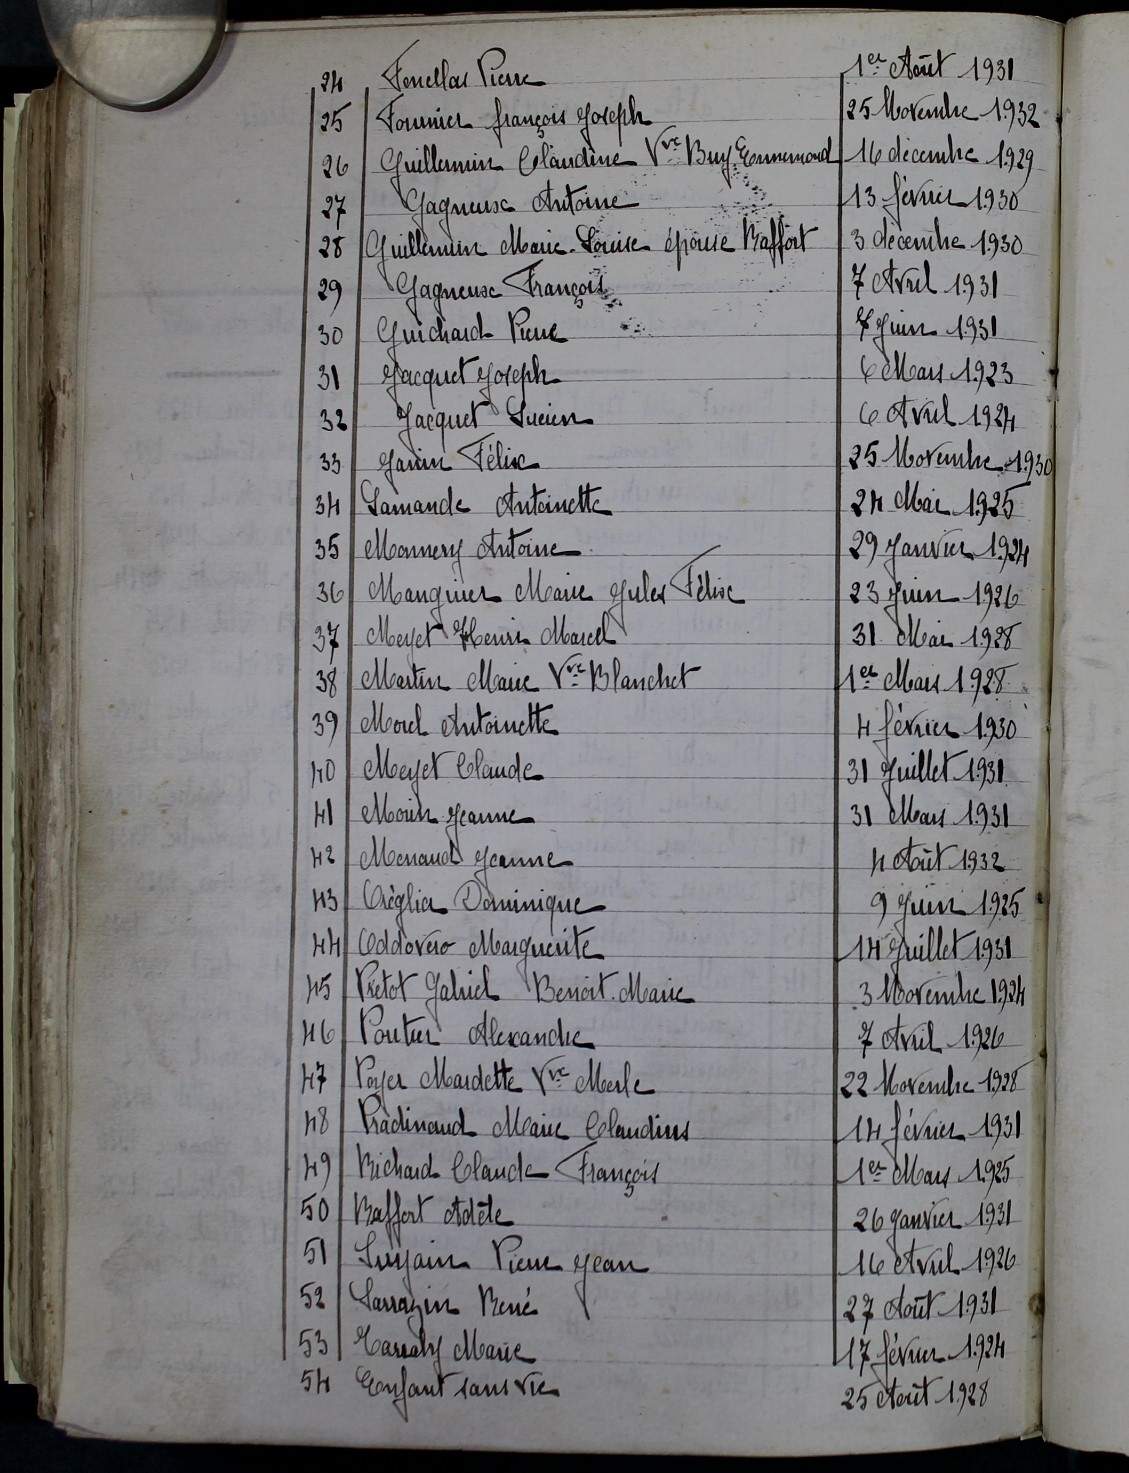 24 Fenellas Pierre 1er Août 1931
25 Fournier françois Joseph 25 Novembre 1932
26 Guillermin Claudine Vve Buy Ennemond 16 décembre 1929
27 Gagneux Antoine 13 février 1930
28 Guillermin Marie-Louise épouse Raffort 3 décembre 1930
29 Gagneux François 7 Avril 1931
30 Guichard Pierre 7 Juin 1931
31 Jacquet Joseph 6 Mars 1923
32 Jacquet Lucien 6 Avril 1924
33 Janin Félix 25 Novembre 1930
34 Lamande Antoinette 24 Mai 1925
35 Monnery Antoine 29 Janvier 1924
36 Manginier Marie Jules Félix 23 Juin 1926
37 Meyet Henri Marcel 31 Mai 1928
38 Martin Marie Vve Blanchet 1er Mars 1928
39 Morel Antoinette 4 février 1930
40 Meyet Claude 31 Juillet 1931
41 Morin Jeanne 31 Mars 1931
42 Menaud Jeanne 4 Août 1932
43 Oréglia Dominique 9 Juin 1925
44 Oddovero Marguerite 14 Juillet 1931
45 Pretot Gabriel Benoit-Marie 3 Novembre 1924
46 Poutier Alexandre 7 Avril 1926
47 Poyer Mardette Vve Merle 22 Novembre 1928
48 Pradinaud Marie Claudius 14 février 1931
49 Richard Claude François 1er Mars 1925
50 Raffort Adèle 26 Janvier 1931
51 Sujain Pierre Jean 16 Avril 1926
52 Sarrazin René 27 Août 1931
53 Marie 17 février 1924
54 Enfant sans vie 25 Août 1928